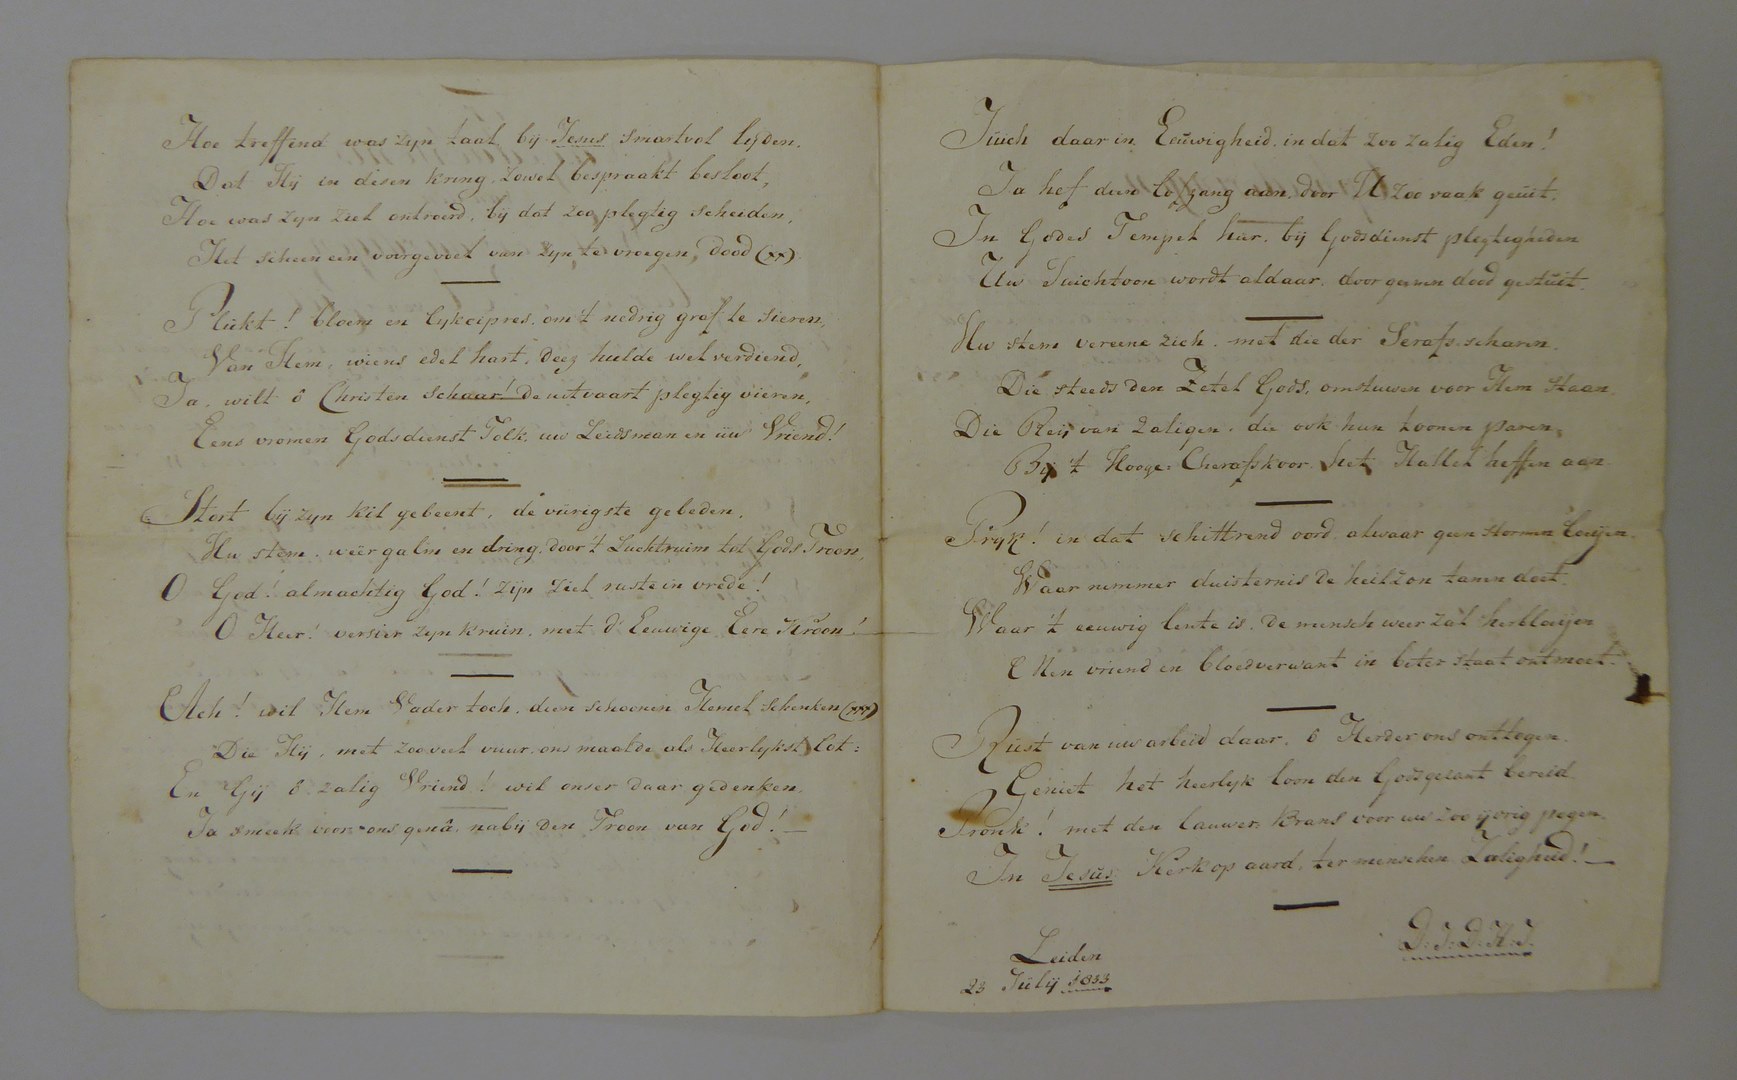 Hoe treffend was zijn taal, bij Jesus smartvol lijden,
Dat Hij in desen kring, zowel bespraakt besloot,
Hoe was zijn ziel ontroerd, bij dat zoo plegtig scheiden,
Het scheen een voorgevoel van zijn te vroegen, dood (xx)
Plukt! bloem en lykcipres, om 't nedrig graf te sieren,
Van Hem, wiens edel hart, deez hulde wel verdiend,
Ja, wilt ô Christen schaar! de uitvaart plegtig vieren,
Eens vromen Godsdienst Tolk, uw Leidsman en uw Vriend!
Stort bij zyn kil gebeent, de vurigste gebeden,
Uw stem, weêrgalm en dring, door 't Luchtruim tot Gods Troon,
O God! almachtig God! zijn ziel ruste in vrede!
O Heer! versier zyn kruin, met d' Eeuwige Eere Kroon!
Ach! wil Hem Vader toch, deze schoonen Hemel schenken (xxx)
Die Hij, met zooveel vuur, ons maalde als Heerlykst lot:
En Gij ô zalig Vriend! wil onser daar gedenken,
Ja smeek voor ons genâ, nabij den Troon van God! —
Juich daar in Eeuwigheid, in dat zoo zalig Eden!
Ja hef dien lofzang aan, door U zoo vaak geuit,
In Godes Tempel hier, bij Godsdienst plegtigheden
Uw Juichtoon wordt aldaar, door geenen dood gestuit.
Uw stem vereene zich, met die der Serafs scharen,
Die steeds den Zetel Gods, omstuwen voor Hem staan,
Die Reij van zaligen, die ook hun toonen paren,
Bij 't Hooge Cherafskoor, het Hallel heffen aan
Pryk! in dat schittrend oord, alwaar geen stormen loeijen,
Waar nimmer duisternis de heilzon tanen doet,
Waar 't eeuwig lente is, de mensch weer zal herbloeijen
En Men vriend en bloedverwant in beter staat ontmoet.
Rust van uw arbeid daar, ô Herder ons onttogen,
Geniet het heerlyk loon den Godsgezant bereid,
Pronk! met den lauwer krans voor uw zoo ijvrig pogen
In Jesus Kerk op aard, ter menschen Zaligheid! —
D. J. D. H. J.
Leiden
23 Julij 1833